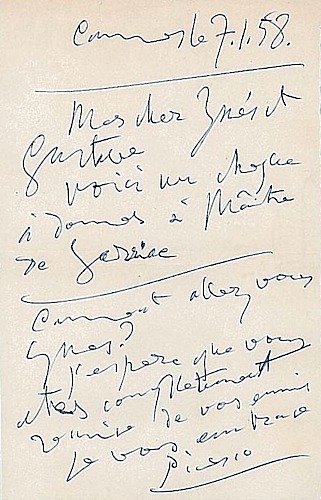 Cannes le 7.1.58.
Mes cher Ynés et
Gustave
voici un cheque
a donner à Maître
de Sarriac
Comment allez vous
Ynes?
j'espere que vous
etes completement
remise de vos ennuis
je vous embrasse
Picasso